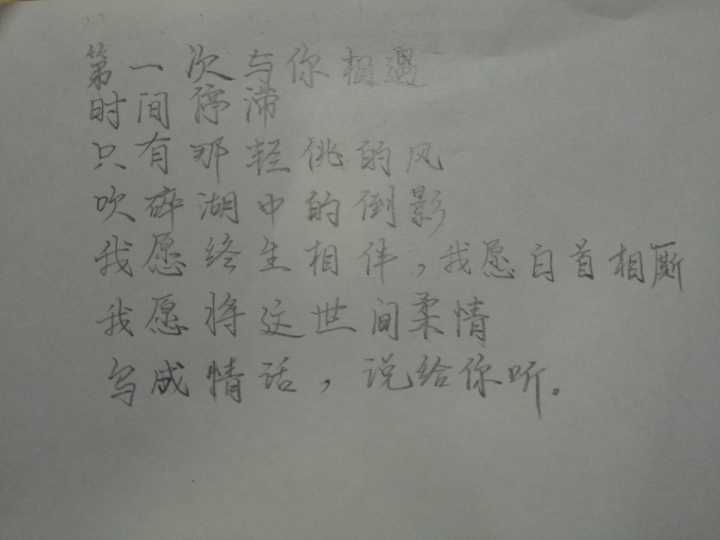 第一次与你相遇
时间停滞
只有那轻佻的风
吹碎湖中的倒影
我愿终生相伴,我愿白首相厮
我愿将这世间柔情
写成情话,说给你听。